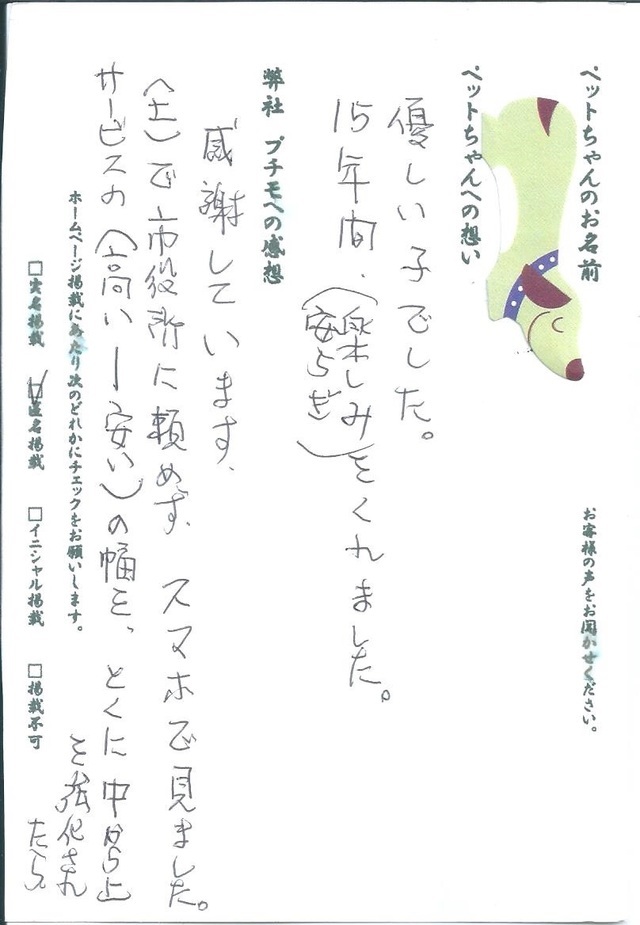 ペットちゃんのお名前
お客様の声をお聞かせください。
ペットちゃんへの想い
優しい子でした。
15年間、(楽しみ 安らぎ)をくれました。
弊社 プチモへの感想
感謝しています、
(土)で市役所に頼めず、スマホで見ました。
サービスの(高い─安い)の幅を、とくに中から上
を強化され
たら。
ホームページ掲載にあたり次のどれかにチェックをお願いします。
□実名掲載 ☑匿名掲載 □イニシャル掲載 □掲載不可